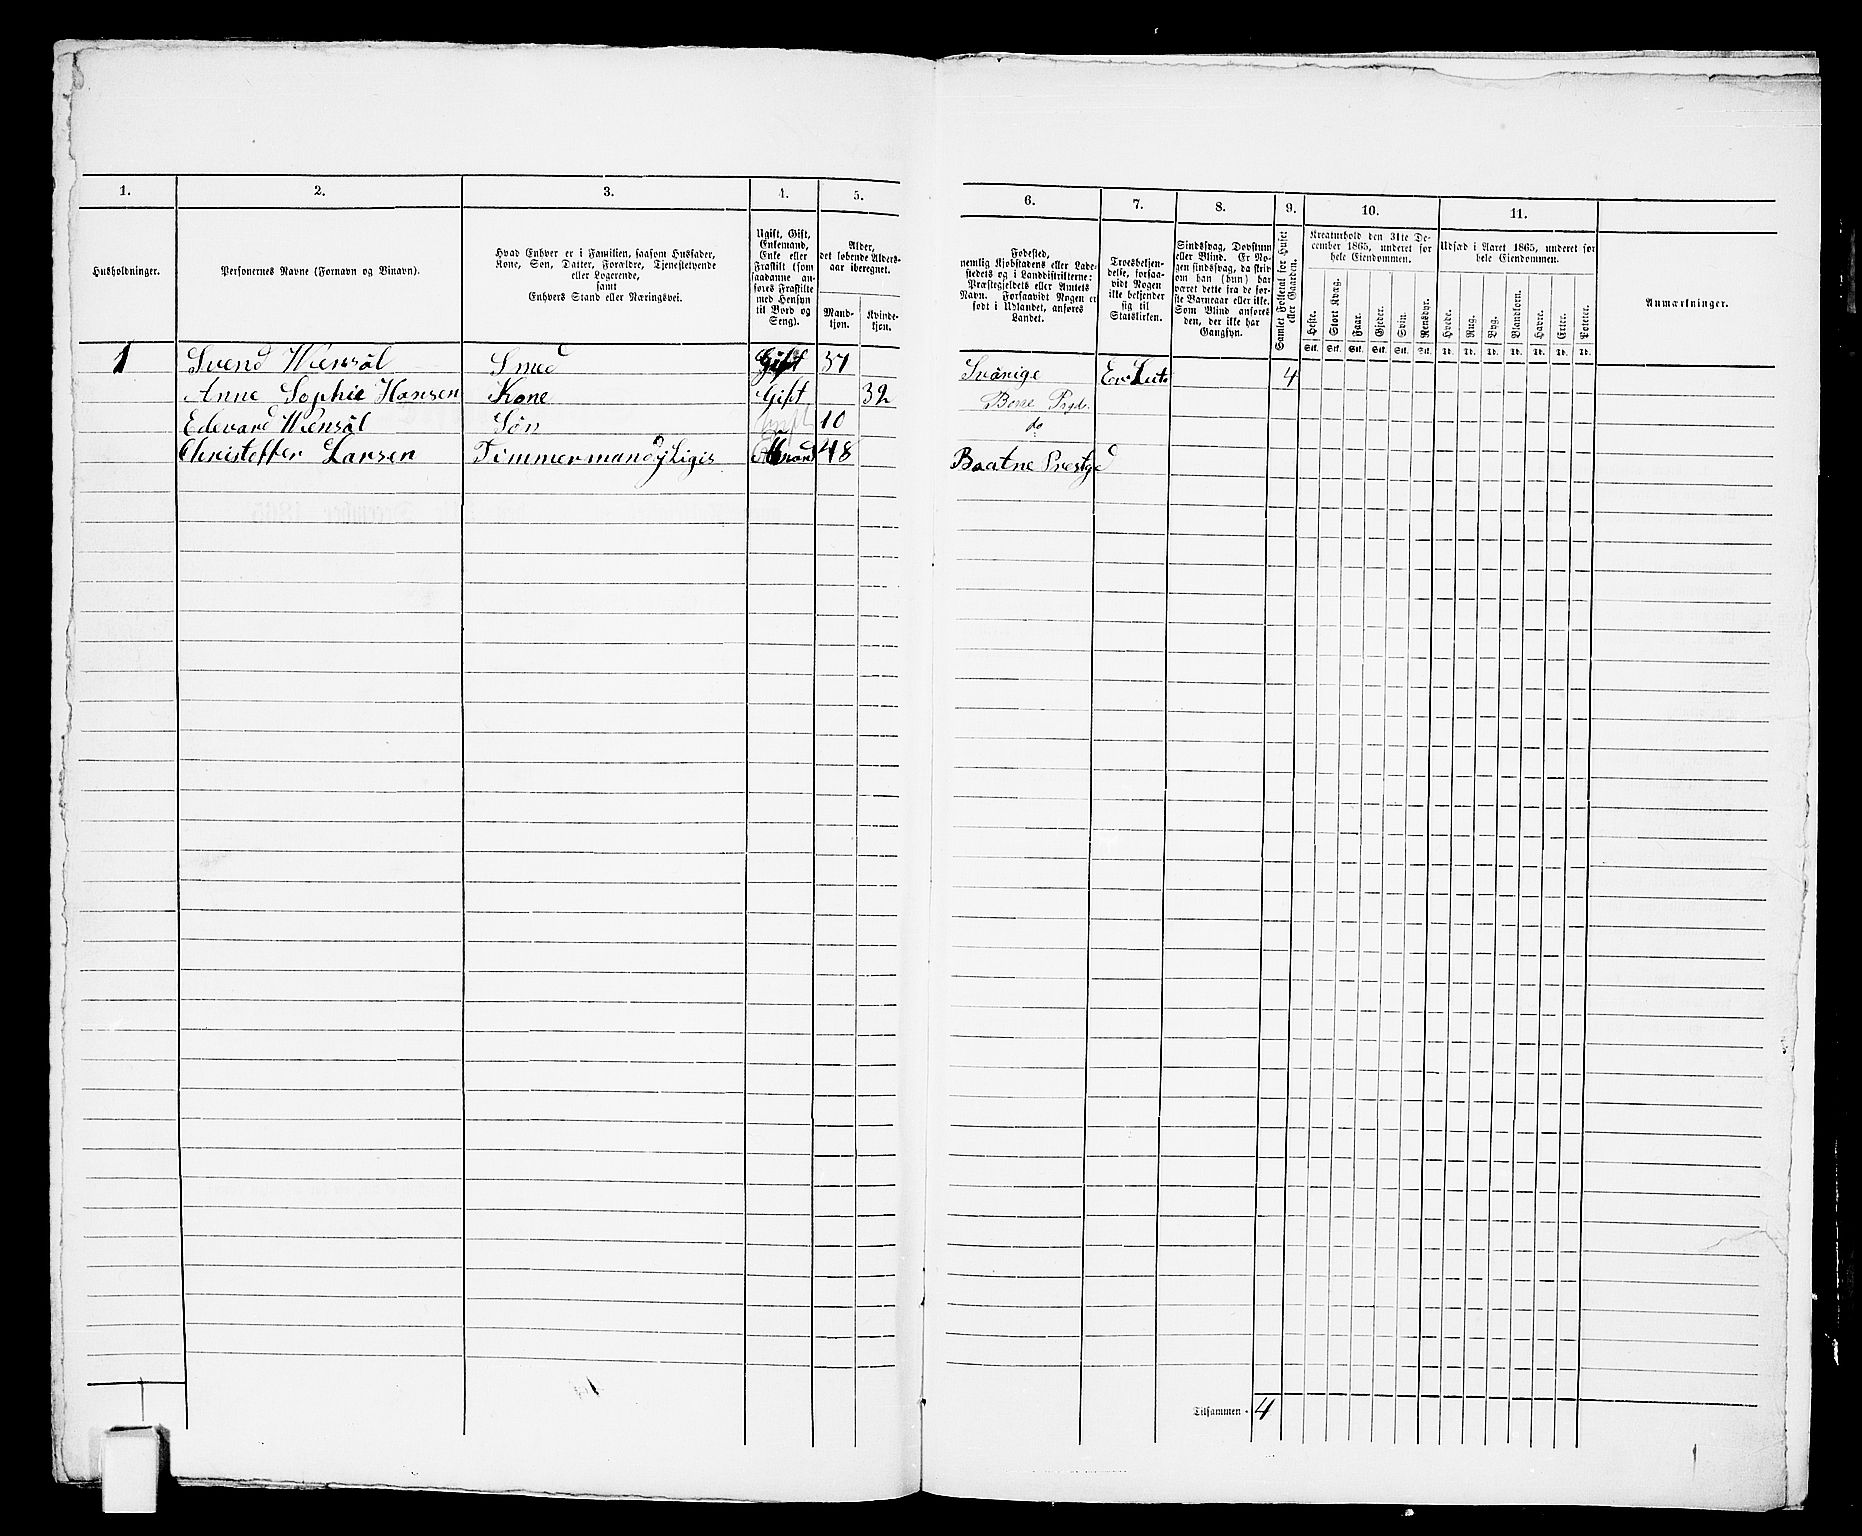 1. 2. 3. 4. 5.
Husholdninger.
Personernes Navne (Fornavn og Binavn).
Hvad Enhver er i Familien, saasom Husfader,
Kone, Søn, Datter, Forældre, Tjenestetyende
eller Logerende,
samt
Enhvers Stand eller Næringsvei.
Ugift, Gift,
Enkemand,
Enke eller
Fraskilt (som
saadanne an-
føres Fraskilte
med Hensyn
til Bord og
Seng).
Alder,
det løbende Alders-
aar iberegnet.
Mand-
kjøn.
Kvinde-
kjøn.
1 Svend Wensöl Smed Gift 37
Anne Sophie Hansen Kone Gift 32
Edevard Wensöl Søn 10
Christoffer Larsen Timmermand 48
6. 7. 8. 9. 10. 11.
Fødested,
nemlig Kjøbstadens eller Lade-
stedets og i Landdistrikterne:
Præstegjeldets eller Amtets
Navn. Forsaavidt Nogen er
født i Udlandet, anføres
Landet.
Troesbekjen-
delse, forsaa-
vidt Nogen
ikke bekjender
sig til
Statskirken.
Sindssvag, Døvstum
eller Blind. Er No-
gen sindssvag, da skriv
om han (hun) har
været dette fra de før-
ste Barneaar eller ikke.
Som Blind anføres
den, der ikke har
Gangsyn.
Samlet Folketal for Huset
eller Gaarden.
Kreaturhold den 31te De-
cember 1865, underet for
hele Eiendommen.
Heste. Stort Kvæg. Faar. Gjeder. Svin. Rensdyr.
Stk. Stk. Stk. Stk. Stk. Stk.
Udsæd i Aaret 1865, underet for
hele Eiendommen.
Hvede. Rug. Byg. Blandkorn. Havre. Erter. Poteter.
Td. Td. Td. Td. Td. Td. Td.
Anmærkninger.
Svärige Ev. Lut. 4
do
Tilsammen - 4